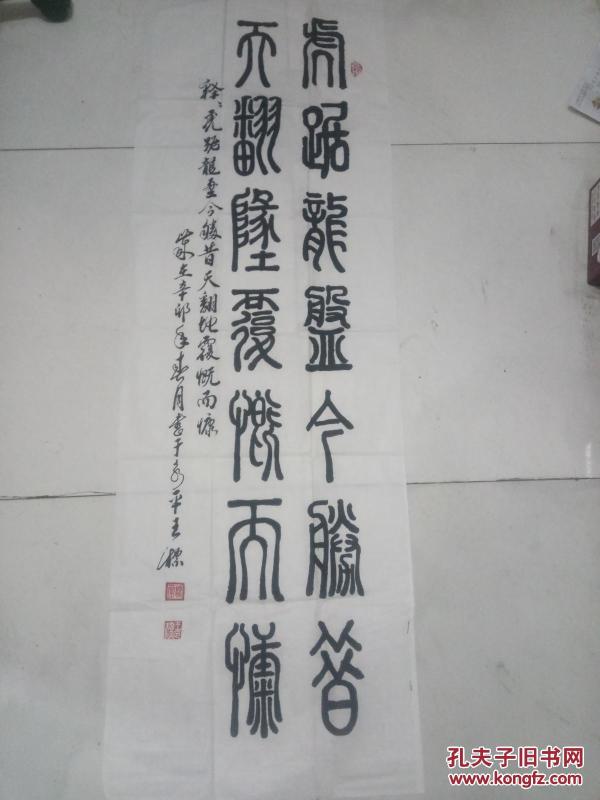 虎踞龍盤今勝昔
天翻墬覆慨而慷
释、虎踞龍盘今勝昔天翻地覆慨而慷
歲在辛卯年春月書于
平王
孔夫子旧书网
www.kongfz.com